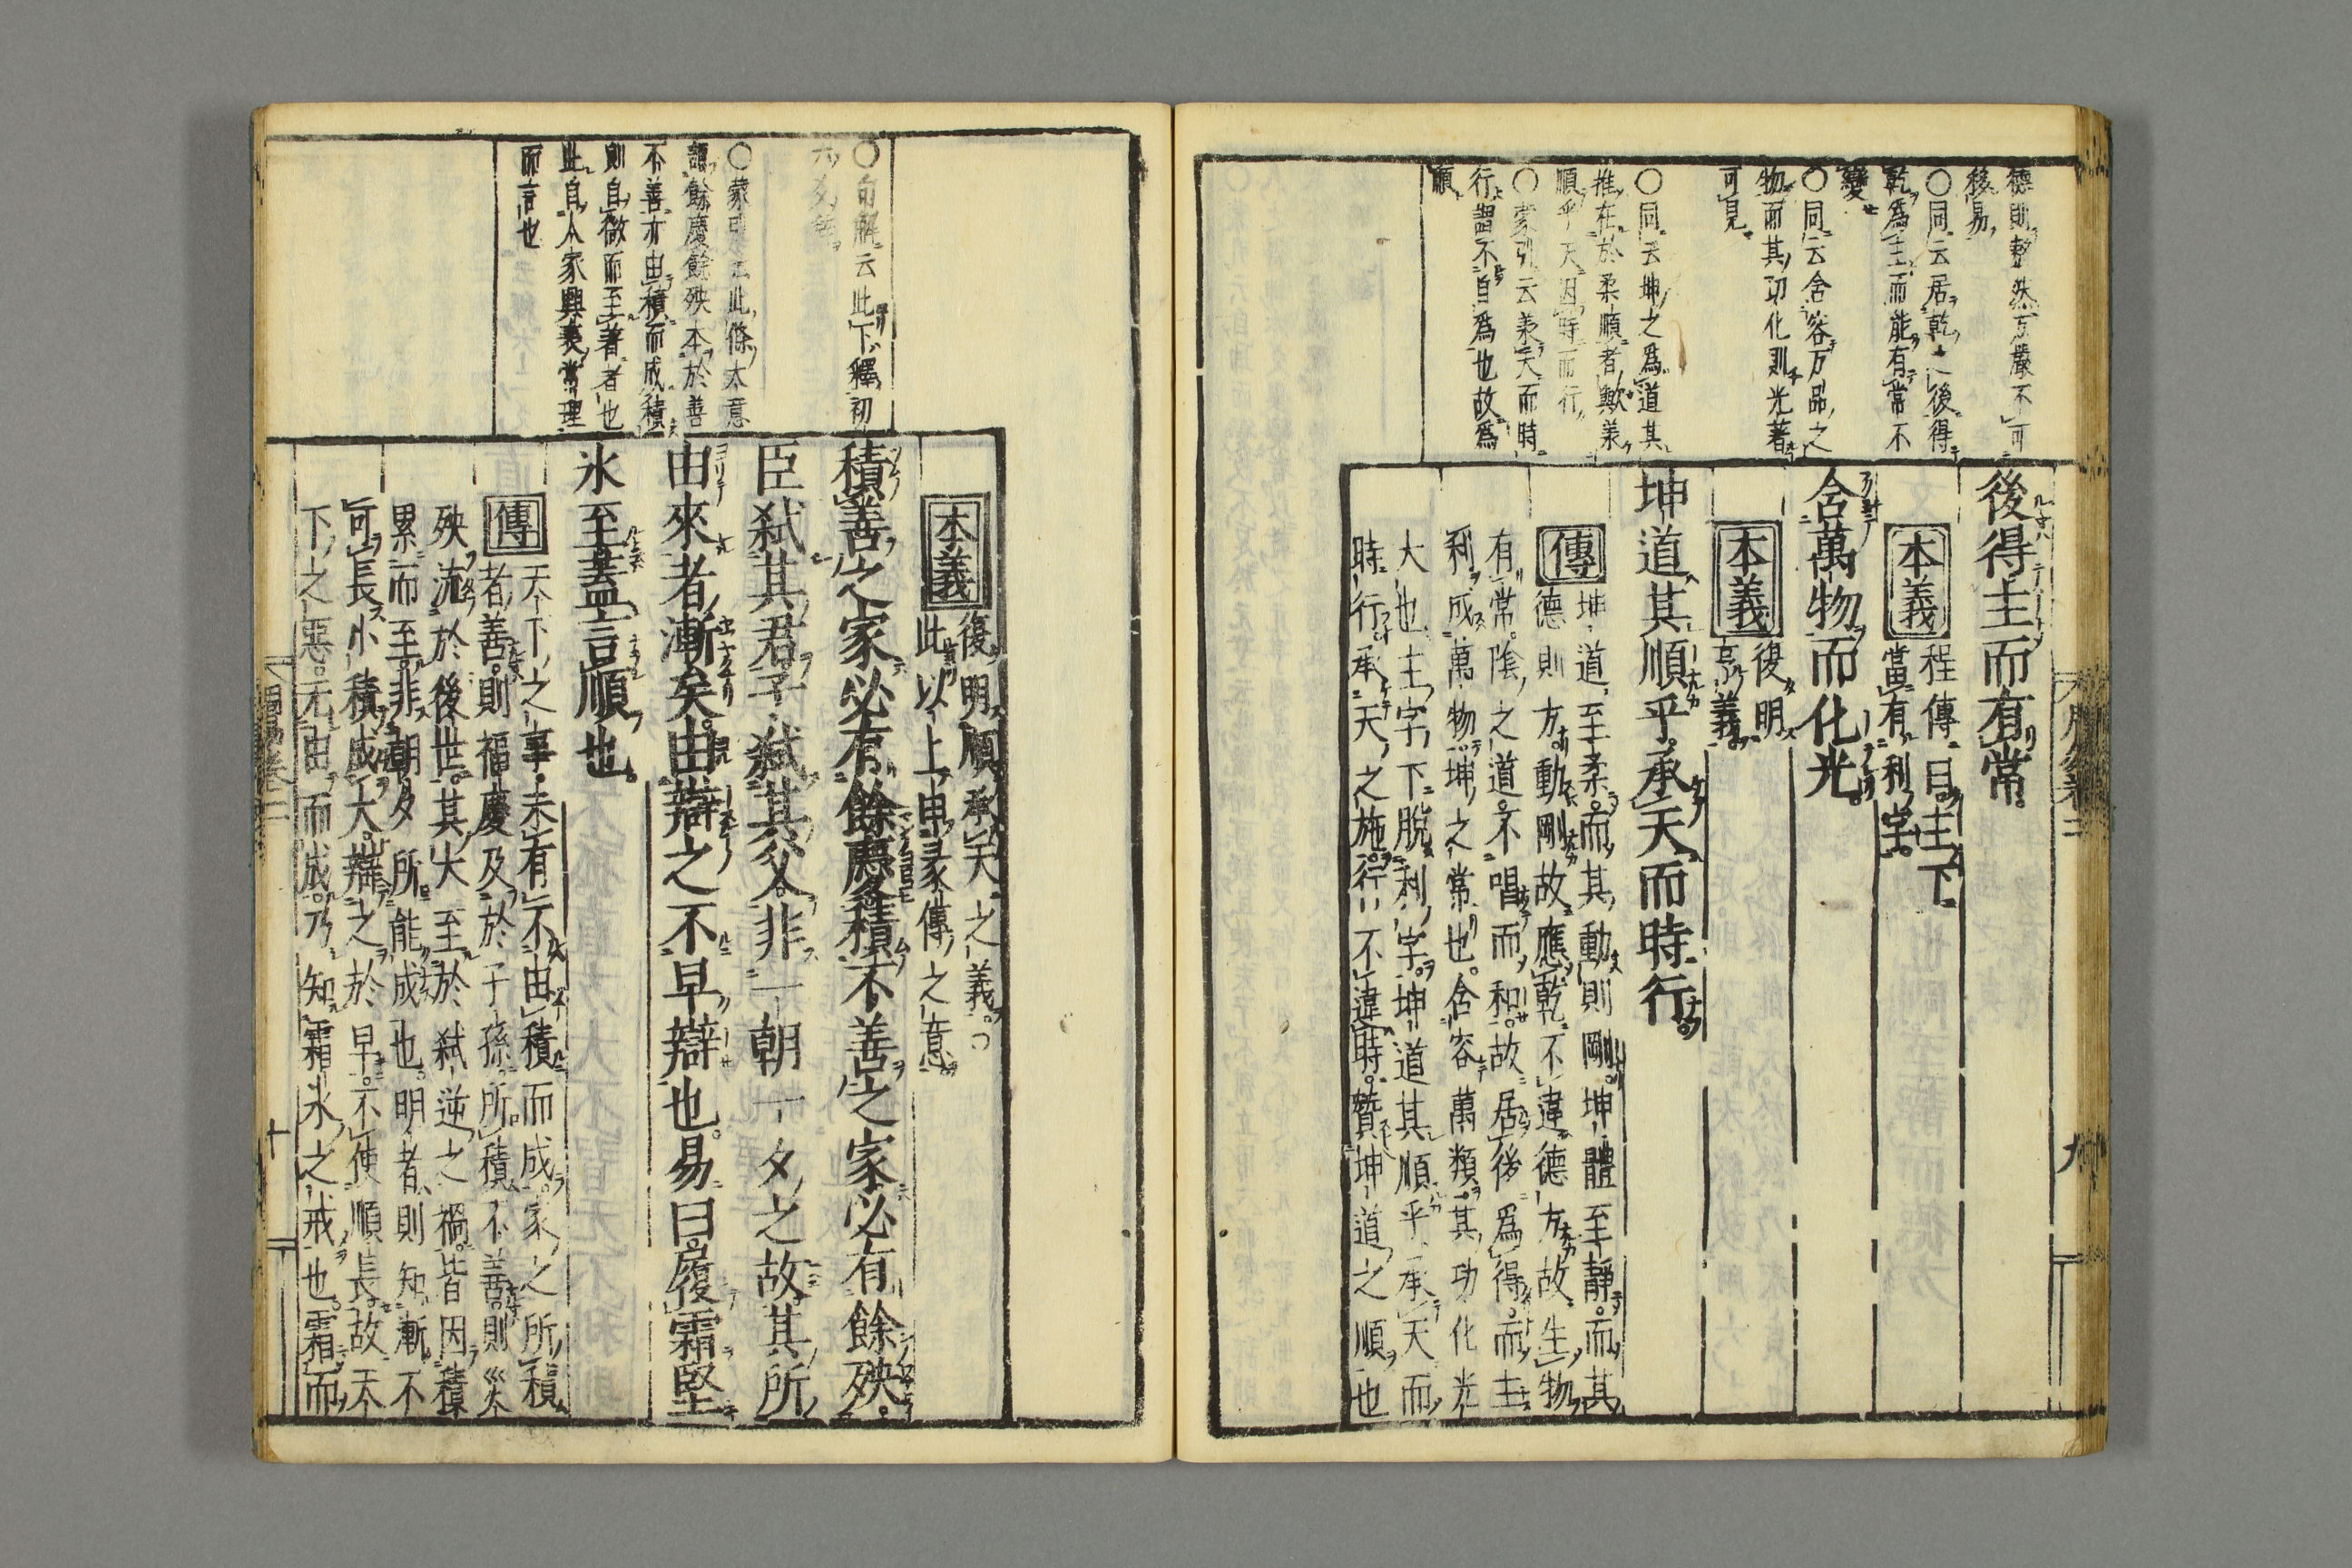 德則整然方嚴不可
移易
○同云居乾之後得
乾爲主而能有常不
變
○同云含容万品之
物而其功化則光著
可見
○同云坤之爲道其
推在於柔順者歟兼
順乎天因時而行
○蒙引云兼天而時
行謂不自爲也故爲
順
後得主而有常。
本義
程傳曰主下
當有利字。
含萬物而化光。
本義
復明
亨義。
坤道其順乎。承天而時行。
傳
坤道至柔。而其動則剛。坤體至靜。而其
德則方。動剛故應乾不違。德方故生物
有常。陰之道。不唱而和。故居後爲得。而主
利成萬物。坤之常也。含容萬類。其功化光
大也。主字下脫利字。坤道其順乎。承天而
時行。承天之施。行不違時。贊坤道之順也
九
○句解云此下釋初
六爻辭
○蒙引云此條大意
謂餘慶餘殃本於善
不善亦由積而成積
則自微而至著者也
此自人家興衰常理
而言也
本義
復明順承天之義。○
此以上申彖傳之意。
積善之家必有餘慶。積不善之家必有餘殃。
臣弒其君。子弒其父。非一朝一夕之故。其所
由來者漸矣。由辯之不早辯也。易曰。履霜堅
氷至。蓋言順也。
傳
天下之事。未有不由積而成。家之所積
者善。則福慶及於子孫。所積不善。則災
殃流於後世。其大至於弒逆之禍。皆因積
累而至。非朝夕所能成也。明者則知漸不
可長。小積成大。辯之於早。不使順長。故天
下之惡。无由而成。乃知霜氷之戒也。霜而
周易卷二
十